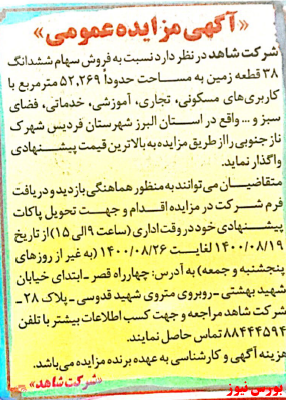 «آگهی مزایده عمومی»
شرکت شاهد در نظر دارد نسبت به فروش سهام ششدانگ
۳۸ قطعه زمین به مساحت حدوداً ۵۲،۲۶۹ مترمربع با
کاربری‌های مسکونی، تجاری، آموزشی، خدماتی، فضای
سبز و ... واقع در استان البرز شهرستان فردیس شهرک
ناز جنوبی را از طریق مزایده به بالاترین قیمت پیشنهادی
واگذار نماید.
متقاضیان می‌توانند به منظور هماهنگی بازدید و دریافت
فرم شرکت در مزایده اقدام و جهت تحویل پاکات
پیشنهادی خود در وقت اداری (ساعت ۹ الی ۱۵) از تاریخ
۱۴۰۰/۰۸/۱۹ لغایت ۱۴۰۰/۰۸/۲۶ (به غیر از روزهای
پنجشنبه و جمعه) به آدرس: چهارراه قصر - ابتدای خیابان
شهید بهشتی - روبروی متروی شهید قدوسی - پلاک ۲۸ -
شرکت شاهد مراجعه و جهت کسب اطلاعات بیشتر با تلفن
۸۸۴۴۴۵۹۴ تماس حاصل نمایند.
هزینه آگهی و کارشناسی به عهده برنده مزایده می‌باشد.
«شرکت شاهد»
بورس نیوز